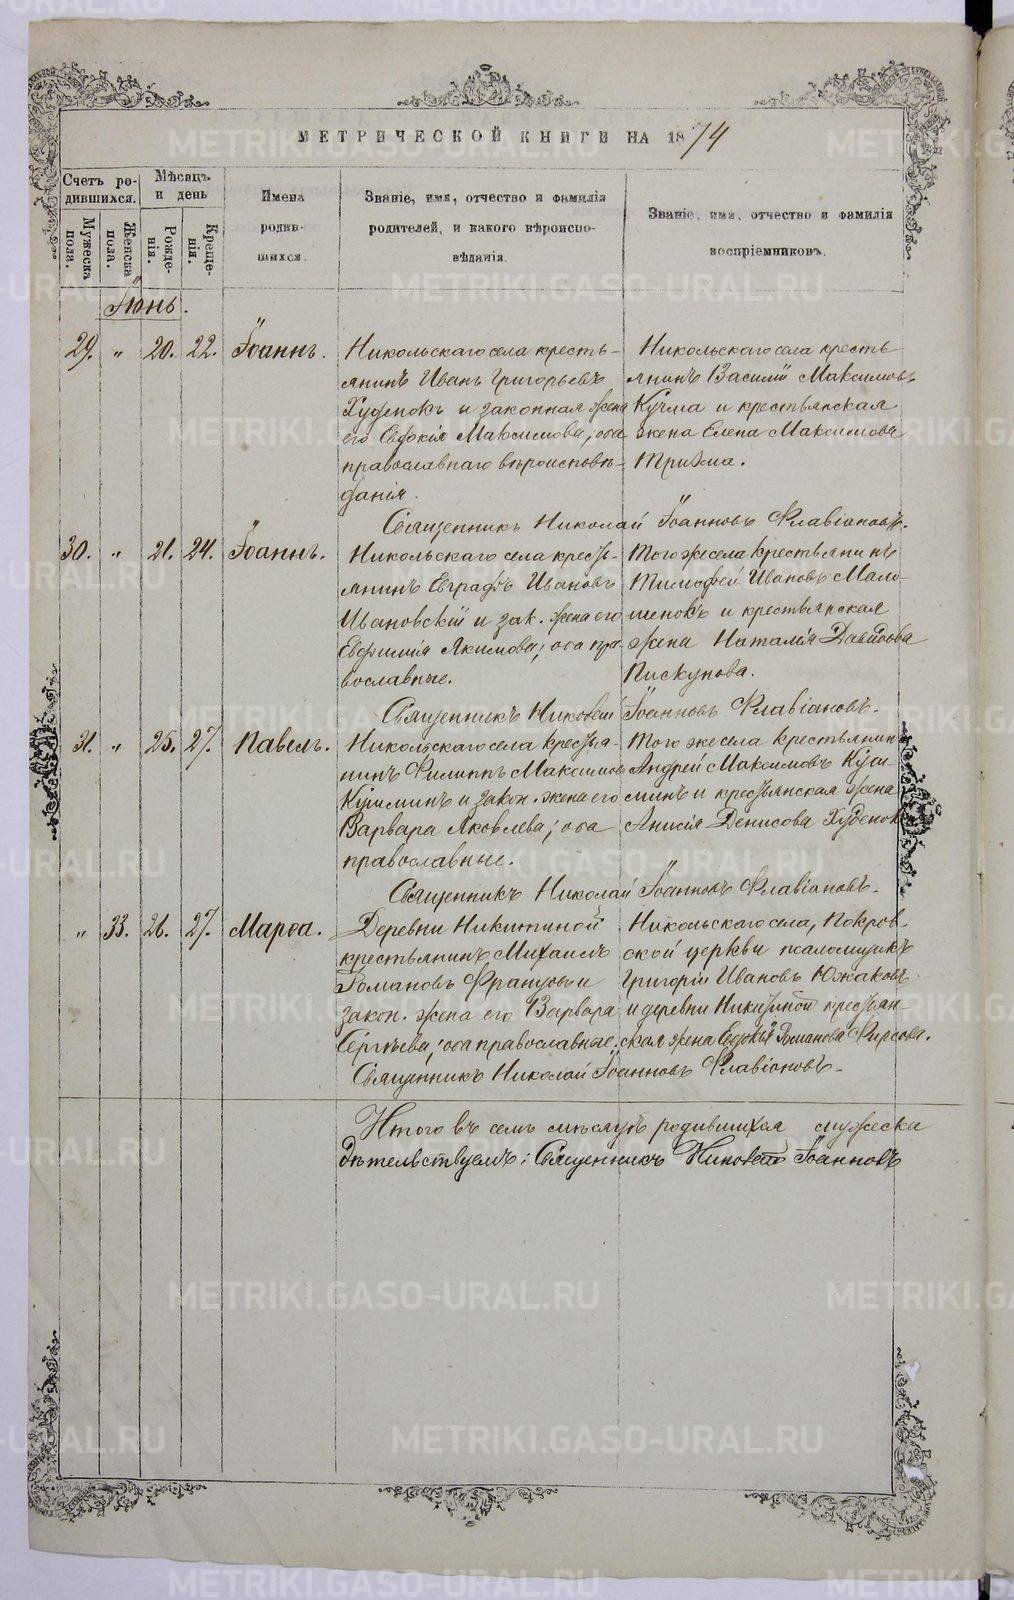 МЕТРИЧЕСКОЙ КНИГИ НА 1874
Счетъ ро-
дившихся.
Мѣсяцъ
и день
Мужеска
пола.
Женска
пола.
Рожде-
нія.
Креще-
нія.
Имена
родив-
шихся.
Званіе, имя, отчество и фамилія
родителей, и какого вѣроиспо-
вѣданія.
Званіе, имя, отчество и фамилія
воспріемниковъ.
Іюнь.
29. " 20. 22. Іоаннъ.
Никольскаго села кресть-
янинъ Иванъ Григорьевъ
Худенокъ и законная жена
его Евдокія Максимова; оба
православнаго вѣроисповѣ-
данія.
Никольскаго села кресть
янинъ Василій Максимовъ
Кузма и крестьянская
жена Елена Максимова
Священникъ Николай Іоанновъ Флавіановъ.
30. " 21. 24. Іоаннъ.
Никольскаго села кресть-
янинъ Евграфъ Ивановъ
Ивановскій и зак. жена его
Евфимія Якимова; оба пра-
вославные.
Того же села крестьянинъ
Тимофей Ивановъ Мало-
шенокъ и крестьянская
жена Наталія Давидова
Пискунова.
Священникъ Николай Іоанновъ Флавіановъ.
31. " 25. 27. Павелъ.
Никольскаго села крестья-
нинъ Филиппъ Максимовъ
Кузминъ и закон. жена его
Варвара Яковлева; оба
православные.
Того же села крестьянинъ
Андрей Максимовъ Куз-
минъ и крестьянская жена
Анисія Денисова Худенок
Священникъ Николай Іоанновъ Флавіановъ.
" 33. 26. 27. Марѳа.
Деревни Никитиной
крестьянинъ Михаилъ
Романовъ и
закон. жена его Варвара
Сергѣева; оба православные.
Никольскаго села, Покров-
ской церкви псаломщикъ
Григорій Ивановъ Южаковъ
и деревни Никитиной крестьян-
ская жена Евдокія Романова Фирсова.
Священникъ Николай Іоанновъ Флавіановъ.
Итого въ семъ мѣсяцѣ родившихся мужеска
дѣтельствуемъ: Священникъ Николай Іоанновъ
METRIKI.GASO-URAL.RU